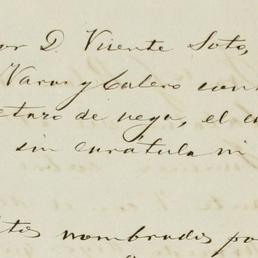 or D. Vicente Soto,
Varas y Calero con
etaro de vega, el c
sin carátula ni
tos nombrados po